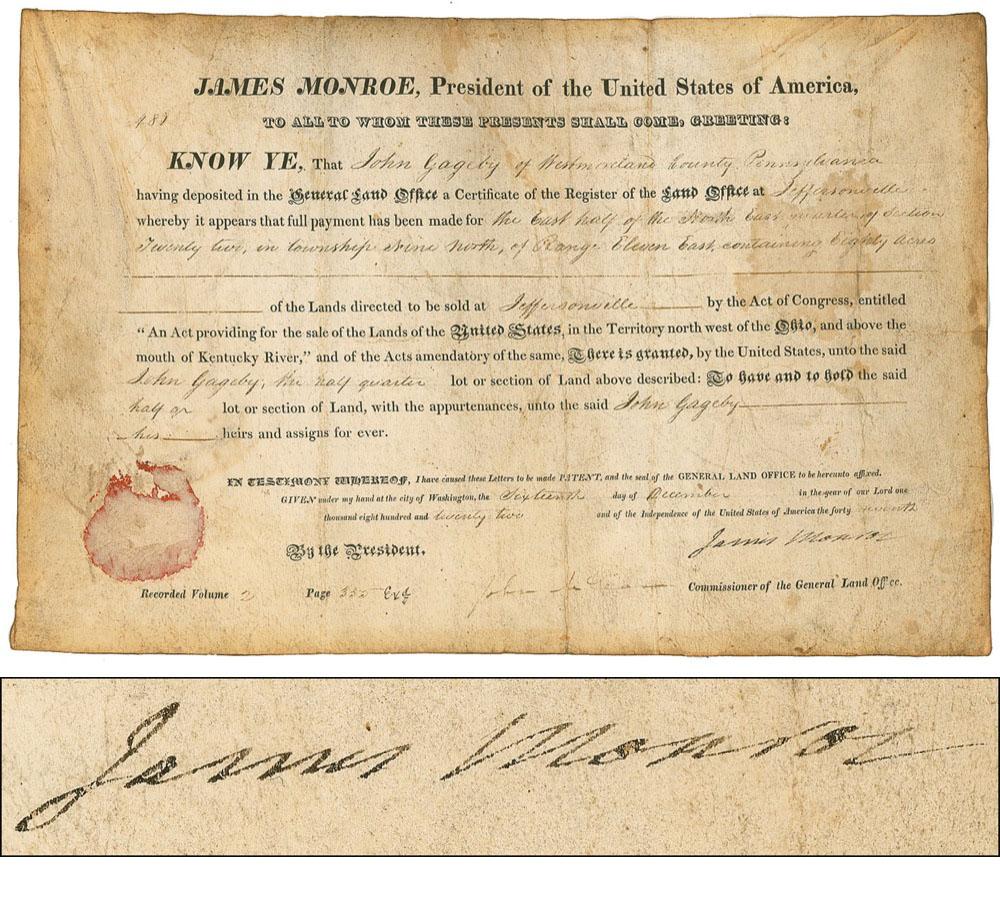 JAMES MONROE, President of the United States of America,
TO ALL TO WHOM THESE PRESENTS SHALL COME, GREETING:
KNOW YE, That John Gageby of Westmoreland County Pennsylvania
having deposited in the General Land Office a Certificate of the Register of the Land Office at Jeffersonville
whereby it appears that full payment has been made for the East half of the North East quarter of Section
Twenty two, in township Nine North, of Range Eleven East, containing Eighty acres
of the Lands directed to be sold at Jeffersonville by the Act of Congress, entitled
"An Act providing for the sale of the Lands of the United States, in the Territory north west of the Ohio, and above the
mouth of Kentucky River," and of the Acts amendatory of the same, There is granted, by the United States, unto the said
John Gageby, the half quarter lot or section of Land above described: To have and to hold the said
half qr lot or section of Land, with the appurtenances, unto the said John Gageby
his heirs and assigns for ever.
IN TESTIMONY WHEREOF, I have caused these Letters to be made PATENT, and the seal of the GENERAL LAND OFFICE to be hereunto affixed.
GIVEN under my hand at the city of Washington, the Sixteenth day of December in the year of our Lord one
thousand eight hundred and twenty two and of the Independence of the United States of America the forty seventh
James Monroe
By the President.
Recorded Volume 2 Page John Commissioner of the General Land Office.
James Monroe